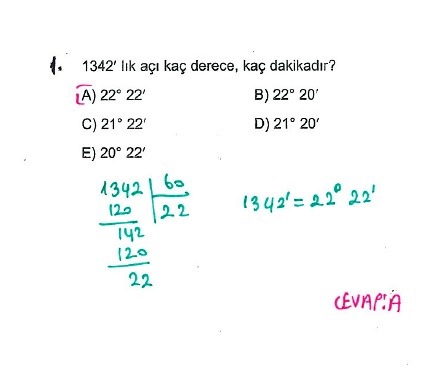 1. 1342' lık açı kaç derece, kaç dakikadır?
A) 22° 22' B) 22° 20'
C) 21° 22' D) 21° 20'
E) 20° 22'
1342 | 60
120 | 22
142
120
22
1342' = 22° 22'
CEVAP: A